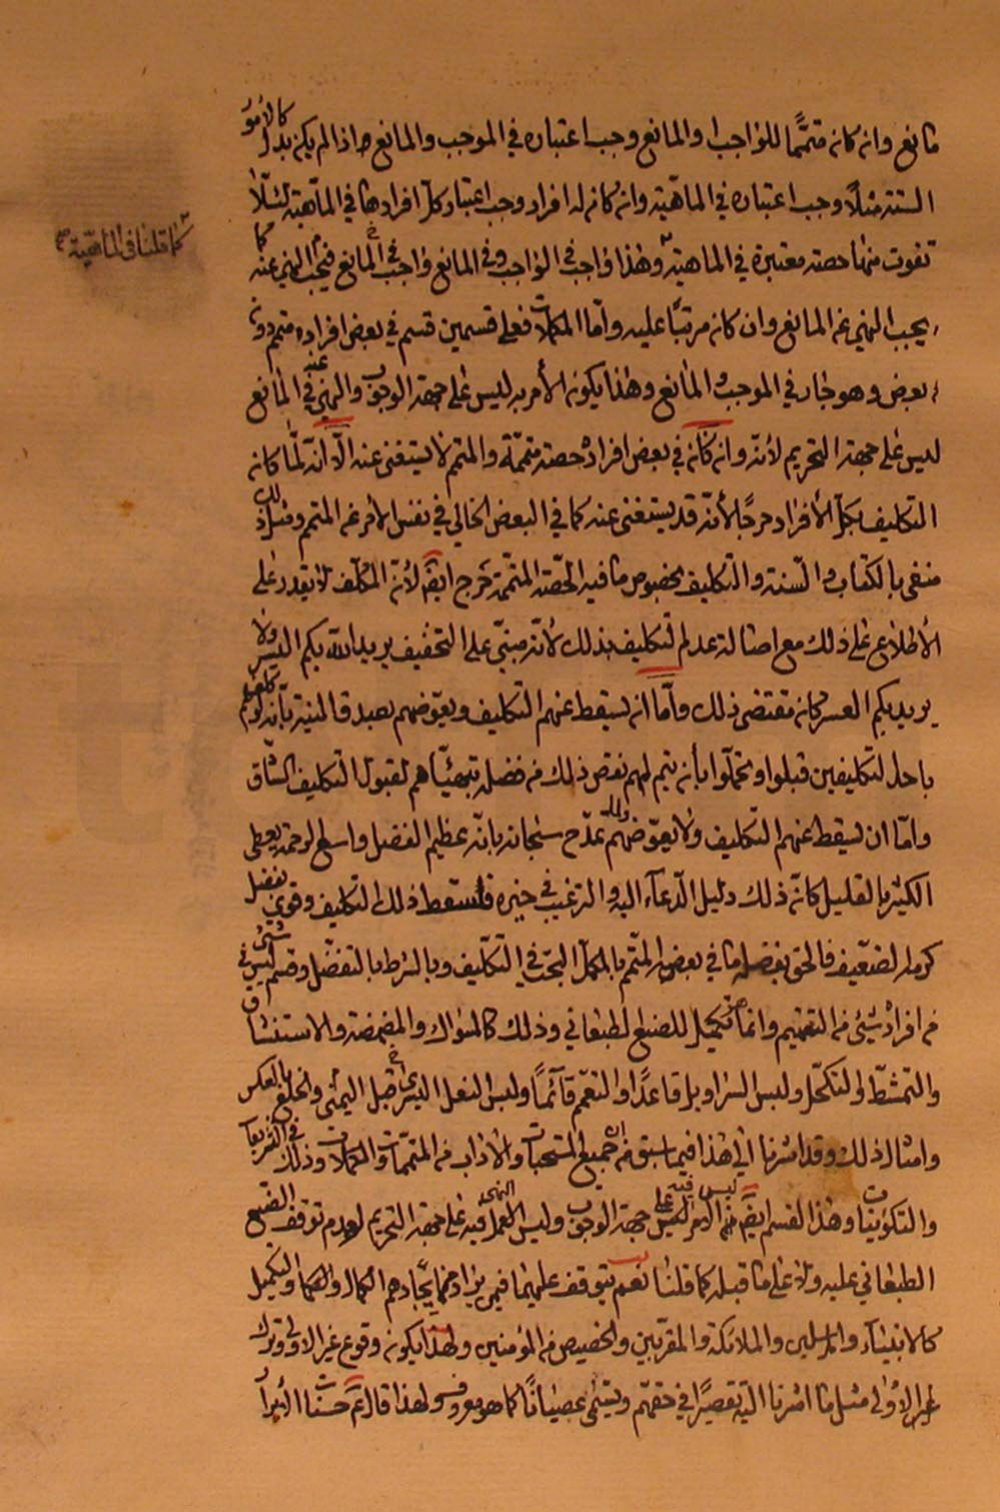 مانع وان كان متمّما للواجب او المانع وجب اعتباره في الموجب والمانع اذا لم يكن بدل كالامو
الستة مثلاً وجب اعتباره في الماهيّة وان كان له افراد وجب اعتبار كل افرادها في الماهيّة لئلّا
تفوت منها حصة معتبرة في الماهيّة وهذا واجب في الواجب وفي المانع واجب في المانع فيجب النهي عنه كما
كما قلنا في الماهيّة صح
يجب النهي عن المانع وان كان مرتبًا عليه وامّا المكملات فعلى قسمين قسم في بعض افراده متمم دون
بعض وهو جار في الموجب والمانع وهذا يكون الأمر به ليس على جهة الوجوب والنهي عنه في المانع
ليس على جهة التحريم لأنّه وان كان في بعض افراده حصة متمّمة والمتمم لا يستغنى عنه الّا انّه لمّا كان
التكليف بكل الأفراد حرجًا لأنّه قد يستغنى عنه كما في البعض الخالي في نفس الأمر عن المتمم ومثل ذلك
منفي بالكتاب والسّنة والتكليف بخصوص ما فيه الحصّة المتمّمة حرج ايضًا لأنّ المكلّف لا يقدر على
الأطلاع على ذلك مع اصالة عدم التكليف بذلك لأنّه مبنيّ على التخفيف يريد الله بكم اليسر ولا
يريد بكم العسر كان مقتضى ذلك وامّا ان يسقط عنهم التكليف ويعوّضهم بصدق النية بأنّه لو كلّفهم
باحد التكليفين قبلوا وتحمّلوا بأن يتم لهم نقص ذلك من فضله بتهيّئاهم لقبول التكليف الشّاق
وامّا ان يسقط عنهم التكليف ولا يعوّضهم ولمّا تمدّح سبحانه بانّه عظيم الفضل واسع الرحمة يعطي
الكثير بالقليل كان ذلك دليل الدّعاء اليه والترغيب في خيره فاسقط ذلك التكليف وقوي بفضل
كرمه الضعيف فالحق بفضله ما في بعضه المتمّم بالمكمل البحت في التكليف وبالشرط بالتفضّل وقسم ليس في شيء
من افراده شيئ من التتميم وانما هو مكمّل للصنع الطبعاني وذلك كالسّواك والمضمضة والاستنشاق
والتمشّط والتكحّل ولبس السّراويل قاعدًا والتعمّم قائمًا ولبس النعل اليسرى قبل اليمنى والخلع بالعكس
وامثال ذلك وقد اشرنا الى هذا فيما سبق من ان جميع المستحبّات والآداب من المتمّمات والمكملات وذلك في التشريعات
والتكوينيّات وهذا القسم ايضًا ليس فيه الامر على جهة الوجوب وليس النهي فيه على جهة التحريم لعدم توقف الصّنع
الطبعاني عليه ولا على ما قبله كما قلنا نعم يتوقف عليهما فيمن يراد منهما ايجادهم الكمال والتكميل
كالانبياء والمرسلين والملائكة والمقرّبين والخصيص من المؤمنين ولهذا يكون وقوع غير الاولى وترك
الاولى مثل ما اشرنا اليه تقصيرًا في حقّهم ويسمّى عصيانًا كما هو معروف ولهذا قال ع حسنات الابرا